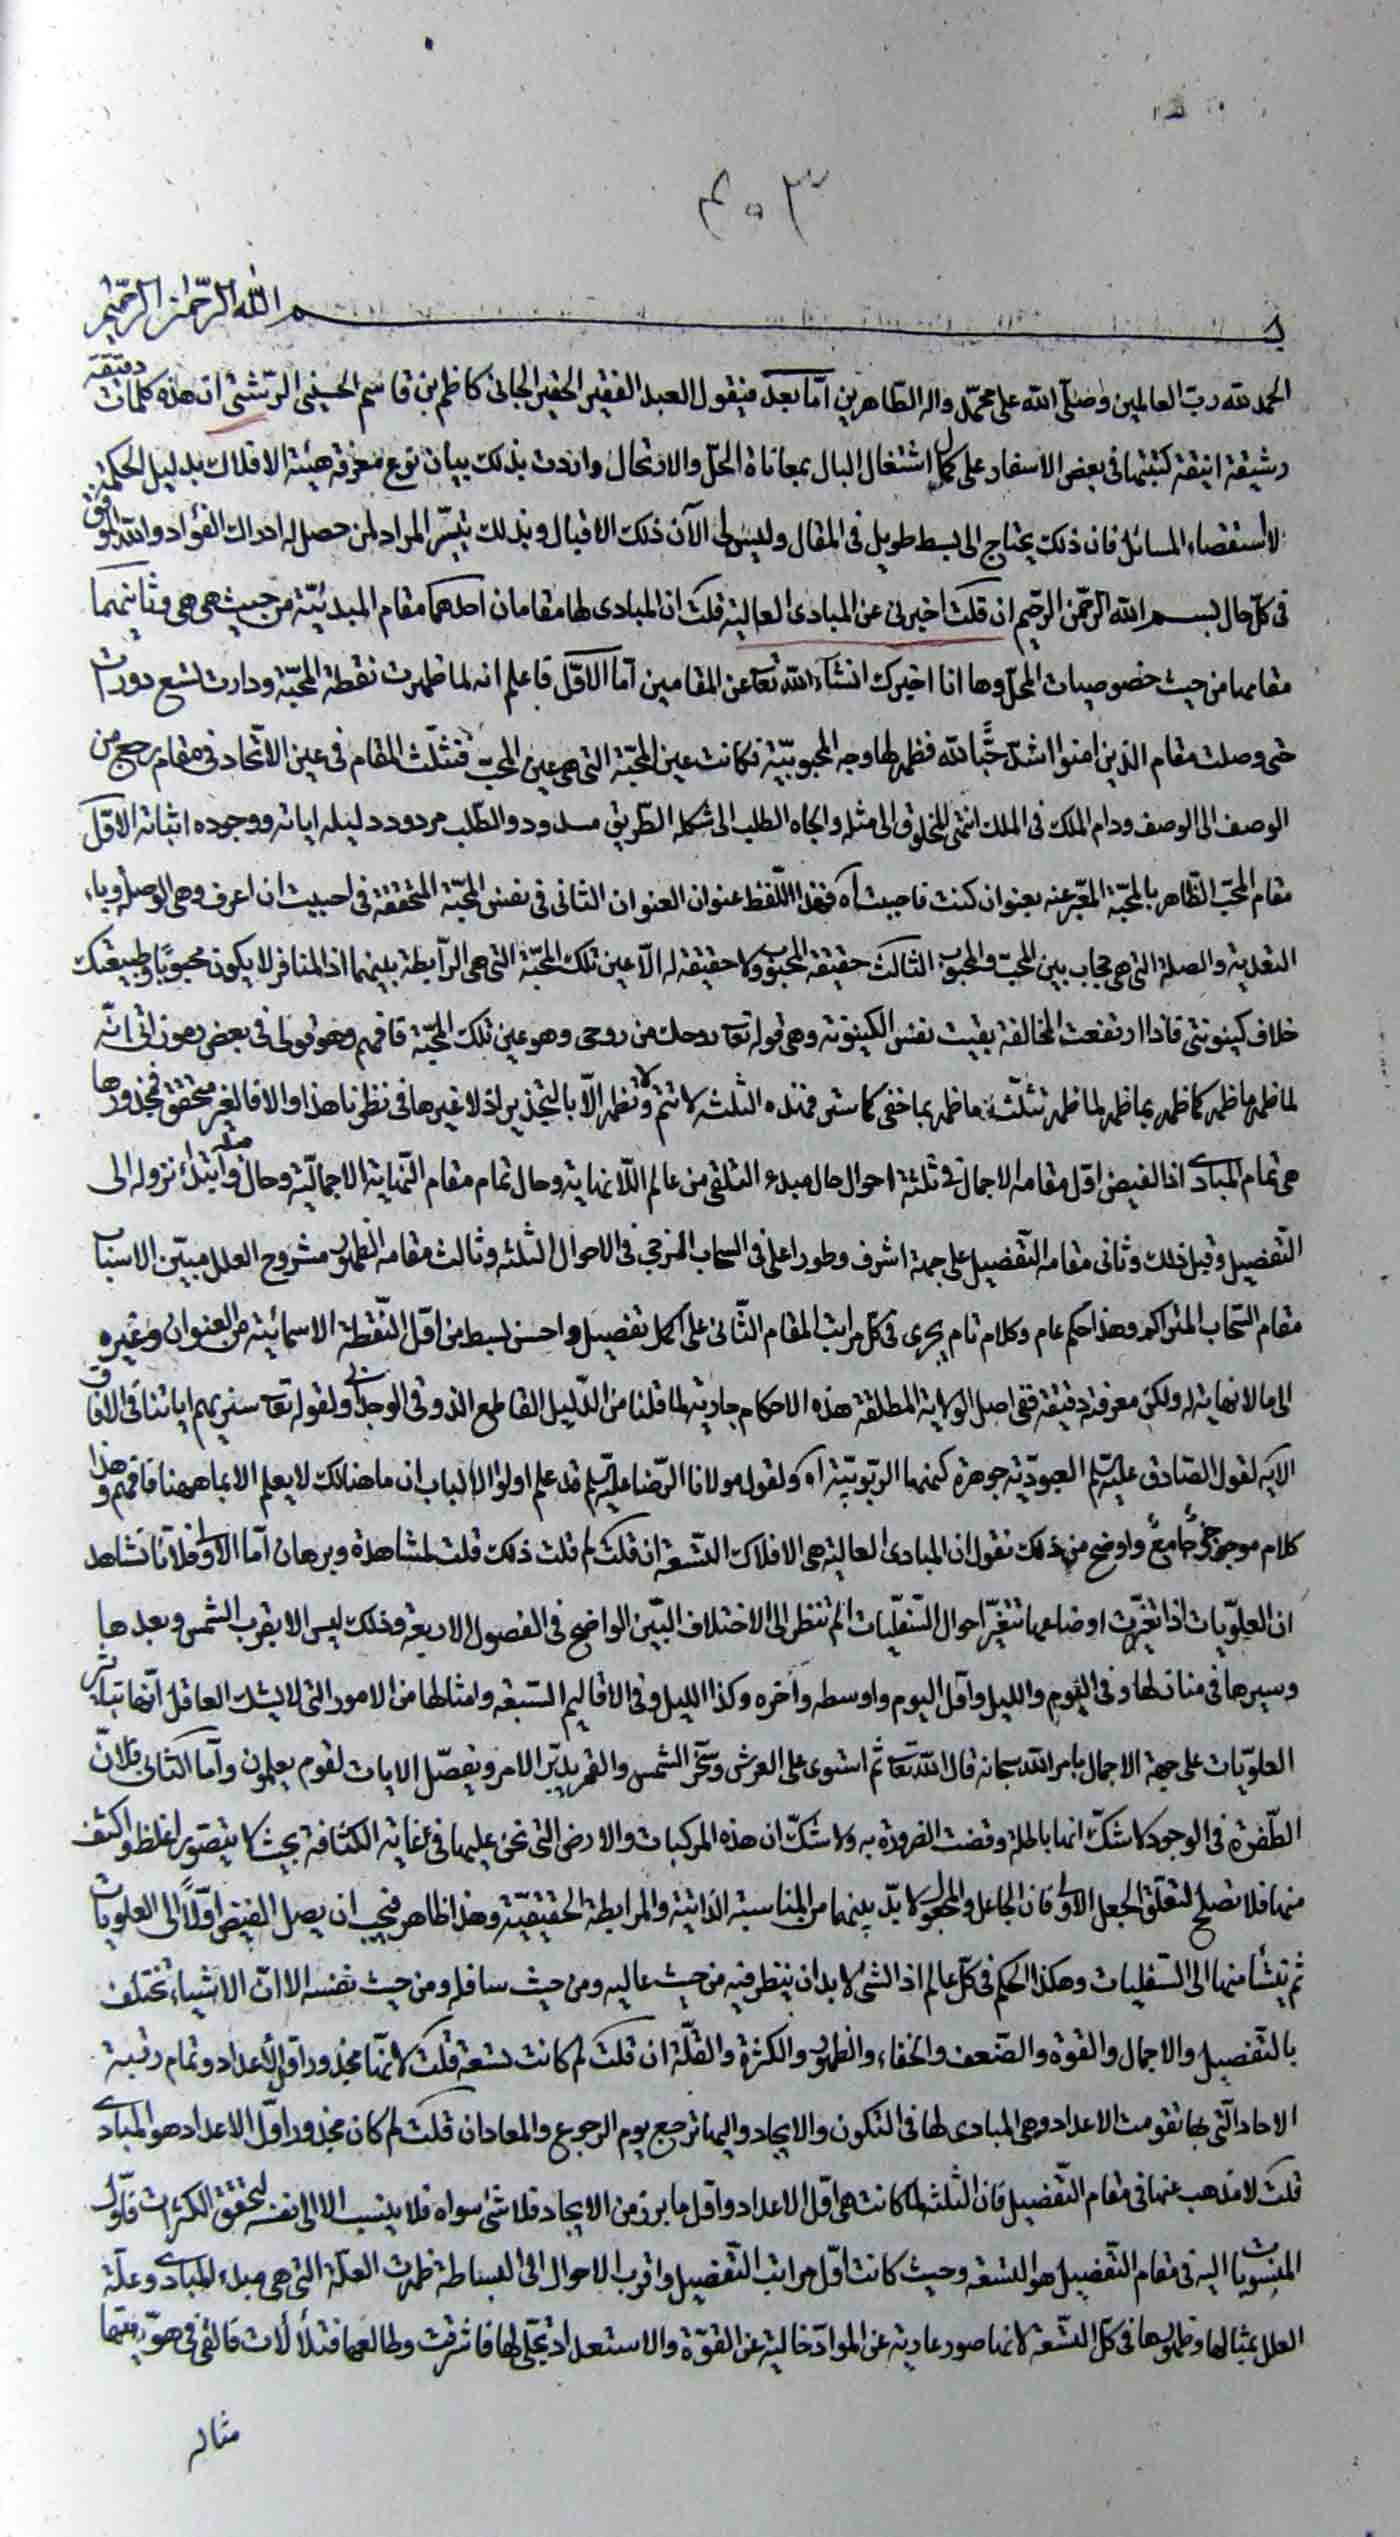 ٣٠٤
بسم الله الرحمن الرحيم
الحمد لله رب العالمين وصلى الله على محمد واله الطاهرين اما بعد فيقول العبد الفقير الحقير الجاني كاظم بن قاسم الحسيني الرشتي ان هذه كلمات دقيقة
رشيقة انيقة كتبتها في بعض الاسفار على كمال اشتغال البال بمعاناة الحل والارتحال واردت بذلك بيان نوع معرفة هيئة الافلاك بدليل الحكمة
لا استقصاء المسائل فان ذلك يحتاج الى بسط طويل في المقال وليس لي الآن ذلك الاقبال وبذلك يتيسر المراد لمن حصل له ادراك الفؤاد والله الموفق
في كل حال بسم الله الرحمن الرحيم ان قلت اخبرني عن المبادي العالية قلت ان المبادي لها مقامان احدهما مقام المبدئية من حيث هي هي وثانيهما
مقامها من حيث خصوصيات المحل وها انا اخبرك انشاء الله تعا عن المقامين اما الاول فاعلم انه لما ظهرت نقطة المحبة ودارت تسع دورات
حتى وصلت مقام الذين امنوا اشد حبا لله فظهر لها وجه المحبوبية فكانت عين المحبة التي هي عين المحب فتثلث المقام في عين الاتحاد في مقام رجع من
الوصف الى الوصف ودام الملك في الملك انتهى المخلوق الى مثله والجاه الطلب الى شكله الطريق مسدود والطلب مردود دليله اياته ووجوده اثباته الاول
مقام المحب الظاهر بالمحبة المعبر عنه بعنوان كنت فاحببت اه فهذا اللفظ عنوان العنوان الثاني في نفس المحبة المتحققة في احببت ان اعرف وهي الوصل وباء
التعدية والصلة التي هي حجاب بين المحب والمحبوب الثالث حقيقة المحبوب ولا حقيقة له الا عين تلك المحبة التي هي الرابطة بينهما اذ المنافر لا يكون محبوبا وطبيعتك
خلاف كينونتي فاذا ارتفعت المخالفة بقيت نفس الكينونة وهي قوله تعا روحك من روحي وهو عين تلك المحبة فافهم وهو قولي في بعض رموزاتي انه
لما ظهر ما ظهر كما ظهر بما ظهر لما ظهر تثلث ما ظهر بما خفي كاستى فهذه الثلثة لا تتم ولا تظهر الا بالتجذير اذ لا غيرها في نظرنا هذا والا فالغير متحقق فمجذورها
هي تمام المبادي اذ الفيض اول مقامه الاجمال في ثلثة احوال حال مبدء التلقي من عالم اللانهاية وحال تمام مقام النهاية الاجمالية وحال ابتداء نزوله الى
التفصيل وقبل ذلك وثاني مقامه التفصيل على جهة اشرف وطور اعلى في السحاب المزجي في الاحوال الثلثه وثالث مقامه الظهور مشروح العلل مبين الاسباب
مقام السحاب المتراكم وهذا حكم عام وكلام تام يجري في كل مراتب المقام الثاني على اكمل تفصيل واحسن بسط من اول النقطة الاسمائية من العنوان وغيره
الى ما لا نهاية له ولكن معرفة دقيقة ففي اصل الولاية المطلقة هذه الاحكام جارية لما قلنا من الدليل القاطع الذوقي الوجداني ولقوله تعا سنريهم اياتنا في الافاق
الاية لقول الصادق عليه السلم العبودية جوهرة كنهها الربوبية اه ولقول مولانا الرضا عليه السلم قد علم اولوا الالباب ان ما هنالك لا يعلم الا بما ههنا فافهم وهذا
كلام موجز خفي جامع واوضح من ذلك نقول ان المبادي العالية هي الافلاك التسعة ان قلت لم قلت ذلك قلت لمشاهدة وبرهان اما الاولى فلانا نشاهد
ان العلويات اذا تغيرت اوضاعها تتغير احوال السفليات الم تنظر الى الاختلاف البين الواضح في الفصول الاربعة وذلك ليس الا بقرب الشمس وبعدها
وسيرها في منازلها وفي اليوم والليل واول اليوم واوسطه وآخره وكذا الليل وفي الاقاليم السبعة وامثالها من الامور التي لا يشك العاقل انها بتاثير
العلويات على جهة الاجمال بامر الله سبحانه قال الله تعا ثم استوى على العرش وسخر الشمس والقمر يدبر الامر ويفصل الايات لقوم يعلمون واما الثاني فلان
الطفرة في الوجود لا شك انها باطلة وقضت الضرورة به ولا شك ان هذه المركبات والارض التي نحن عليها في غاية الكثافة بحيث لا يتصور اغلظ واكثف
منها فلا تصلح لتعلق الجعل الاولى فان الجاعل والمجعول لا بد بينهما من المناسبة الذاتية والمرابطة الحقيقية وهذا ظاهر فيجب ان يصل الفيض اولا الى العلويات
ثم تنشأ منها الى السفليات وهكذا الحكم في كل عالم اذ الشئ لا بد ان ينظر فيه من حيث عاليه ومن حيث سافله ومن حيث نفسه الا ان الاشياء تختلف
بالتفصيل والاجمال والقوة والضعف والخفاء والظهور والكثرة والقلة ان قلت لم كانت تسعة قلت لانها مجذور اول الاعداد وتمام رتبة
الاحاد التي بها تقومت الاعداد وهي المبادي لها في التكون والايجاد واليها ترجع يوم الرجوع والمعاد ان قلت لم كان مجذور اول الاعداد هو المبادي
قلت لا مذهب عنها في مقام التفصيل فان الثلثة لما كانت هي اول الاعداد واول ما برز من الايجاد فلا شئ سواه فلا ينسب الا الى نفسه لتحقق الكثرات فاول
المنسوبات اليه في مقام التفصيل هو التسعة وحيث كانت اول مراتب التفصيل واقرب الاحوال الى البساطة ظهرت العلة التي هي مبدء المبادي وعلة
العلل بمثالها وظهورها في كل التسعة لانها صور عارية عن المواد خالية عن القوة والاستعداد تجلى لها فاشرقت وطالعها فتلألأت فالقى في هويتها
مثاله